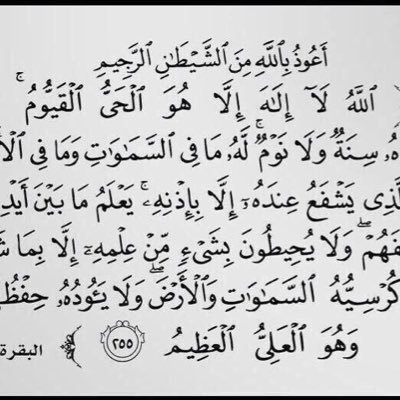 أَعُوذُ بِٱللَّهِ مِنَ ٱلشَّيْطَـٰنِ ٱلرَّجِيمِ
ٱللَّهُ لَآ إِلَـٰهَ إِلَّا هُوَ ٱلْحَىُّ ٱلْقَيُّومُ ۚ
سِنَةٌ وَلَا نَوْمٌ ۚ لَّهُۥ مَا فِى ٱلسَّمَـٰوَٰتِ وَمَا فِى
يَشْفَعُ عِندَهُۥٓ إِلَّا بِإِذْنِهِۦ ۚ يَعْلَمُ مَا بَيْنَ
وَلَا يُحِيطُونَ بِشَىْءٍ مِّنْ عِلْمِهِۦٓ إِلَّا بِمَا
كُرْسِيُّهُ ٱلسَّمَـٰوَٰتِ وَٱلْأَرْضَ ۖ وَلَا يَـُٔودُهُۥ
وَهُوَ ٱلْعَلِىُّ ٱلْعَظِيمُ ٢٥٥ البقرة